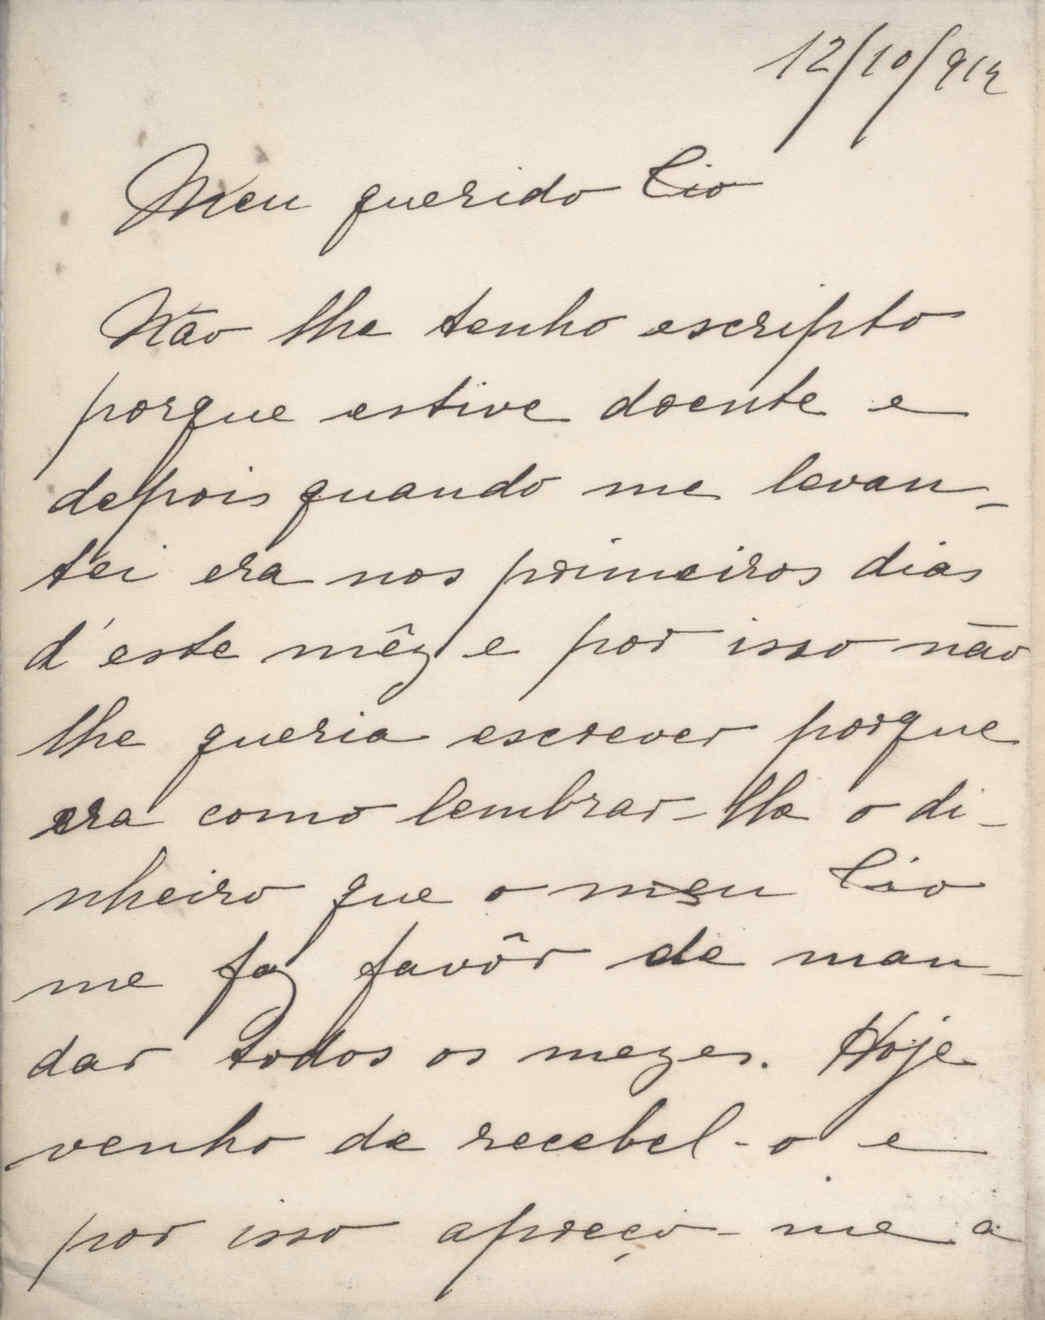 12/10/912
Meu querido Tio
Não lhe tenho escripto
porque estive doente e
depois quando me levan-
tei era nos primeiros dias
d'este mêz e por isso não
lhe queria escrever porque
era como lembrar-lhe o di-
nheiro que o meu Tio
me faz favôr de man-
dar todos os mezes. Hoje
venho de recebel-o e
por isso apreço-me a